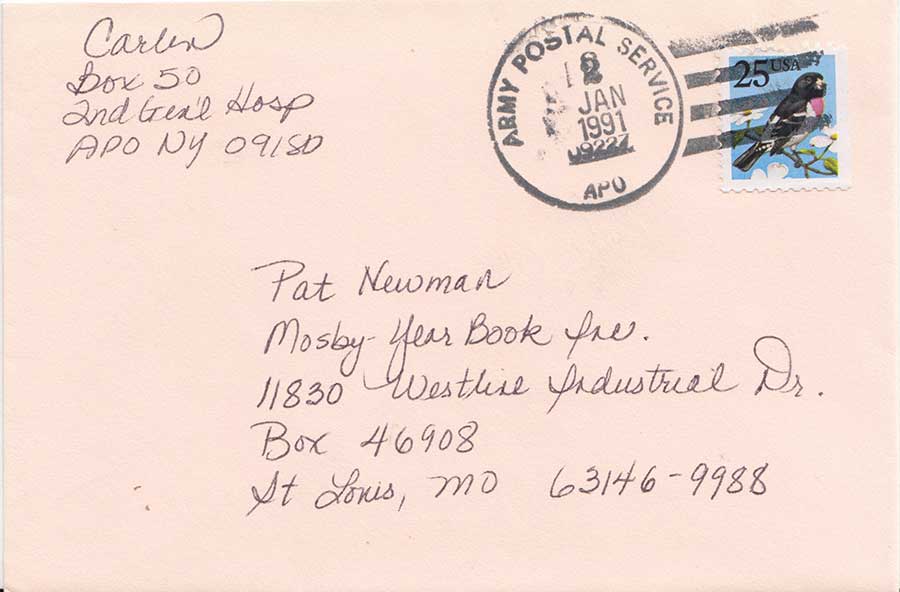 Carlen
Box 50
2nd Gen'l Hosp
APO NY 09180
ARMY POSTAL SERVICE
JAN
1991
APO
25 USA
Pat Newman
Mosby-Year Book Inc.
11830 Westline Industrial Dr.
Box 46908
St Louis, MO 63146-9988